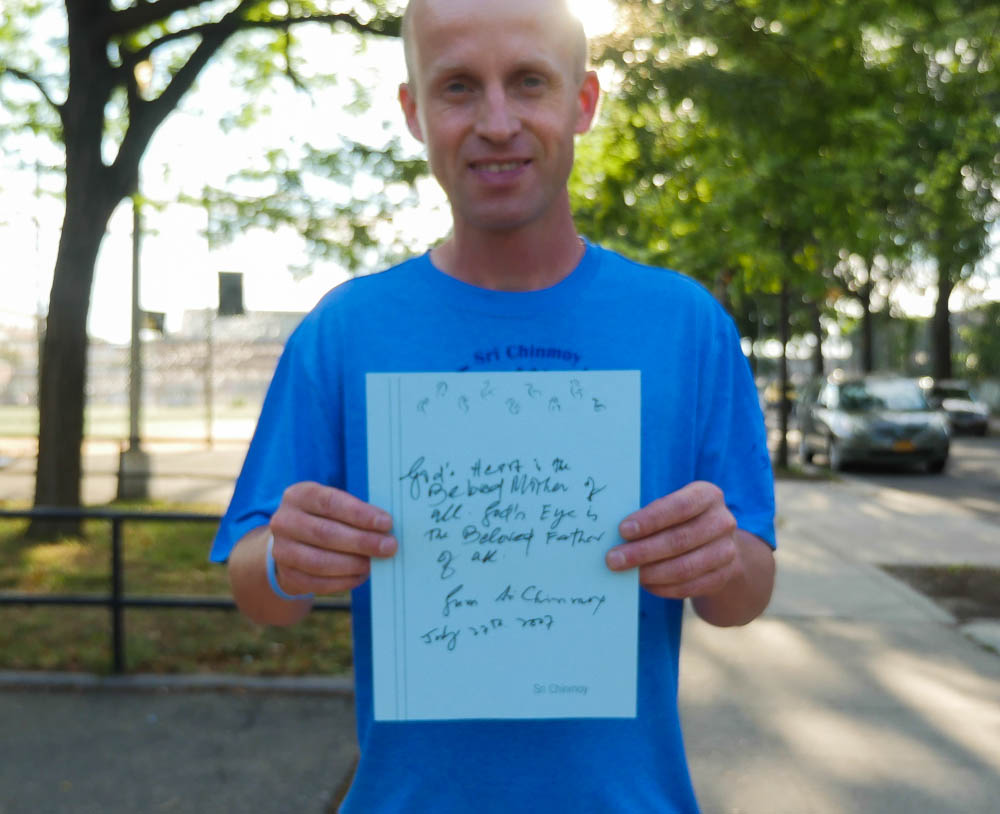 Sri Chinmoy
God's Heart is the
Beloved Mother of
all. God's Eye is
The Beloved Father
of all.
from Sri Chinmoy
July 27th 2007
Sri Chinmoy